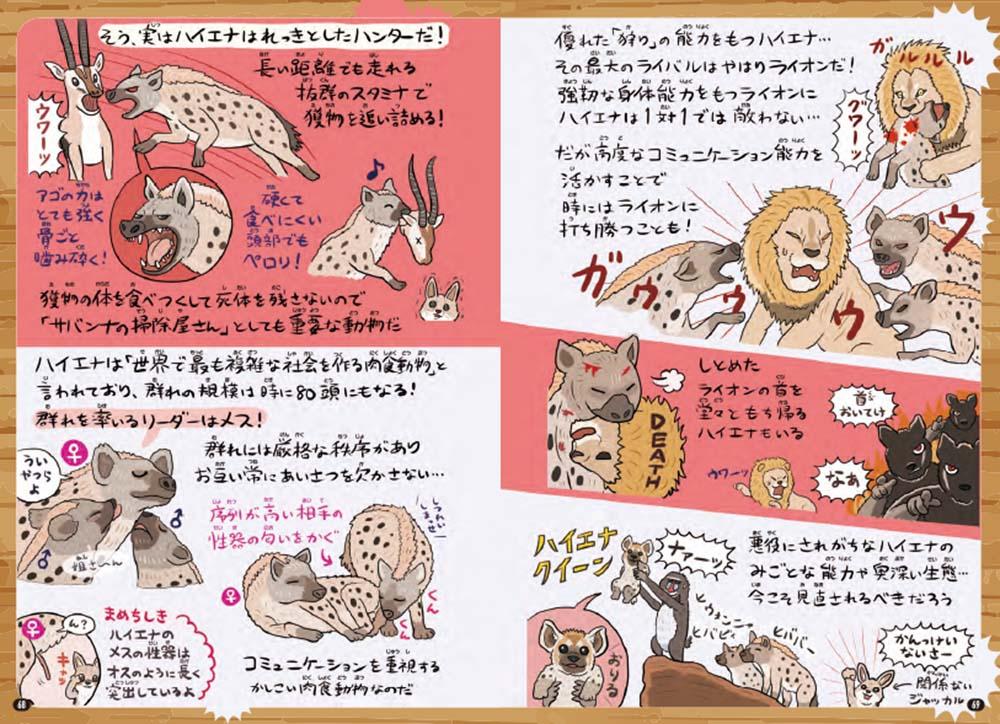 そう、実はハイエナはれっきとしたハンターだ!
長い距離でも走れる
抜群のスタミナで
獲物を追い詰める!
ウワーッ
アゴの力は
とても強く
骨ごと
噛み砕く!
硬くて
食べにくい
頭部でも
ペロリ!
獲物の体を食べつくして死体を残さないので
「サバンナの掃除屋さん」としても重要な動物だ
ハイエナは「世界で最も複雑な社会を作る肉食動物」と
言われており、群れの規模は時に80頭にもなる!
群れを率いるリーダーはメス!
♀
ういやつらよ
♂
♂
姐さ〜ん
群れには厳格な秩序があり
お互い常にあいさつを欠かさない…
序列が高い相手の
性器の匂いをかぐ
♀
くん
くん
コミュニケーションを重視する
かしこい肉食動物なのだ
♀
ん?
キャッ
まめちしき
ハイエナの
メスの性器は
オスのように長く
突出しているよ
68
優れた「狩り」の能力をもつハイエナ…
その最大のライバルはやはりライオンだ!
強靭な身体能力をもつライオンに
ハイエナは1対1では敵わない…
ガルルル
グワーッ
だが高度なコミュニケーション能力を
活かすことで
時にはライオンに
打ち勝つことも!
ガウウウウ
しとめた
ライオンの首を
堂々ともち帰る
ハイエナもいる
DEATH
ウワーッ
首おいてけ
なあ
ハイエナ
クイーン
ナァーッ
おりる
悪役にされがちなハイエナの
みごとな能力や奥深い生態…
今こそ見直されるべきだろう
ヒバババ
かんっけい
ないさー
←関係ない
ジャッカル
69